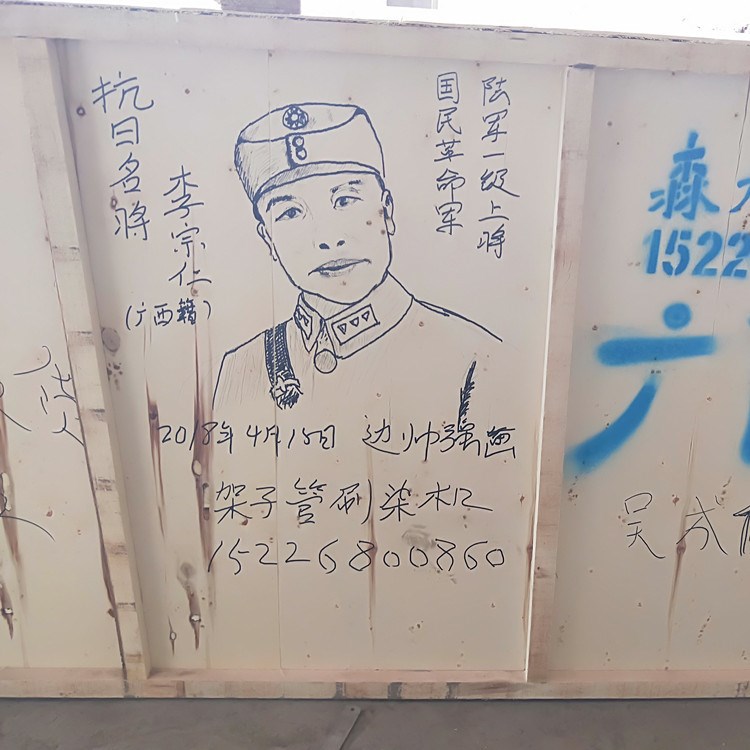 抗日名将
李宗仁
(广西籍)
国民革命军
陆军一级上将
2018年4月15日 边帅强画
架子管刷染机
15226800860
森
1522
六
吴成